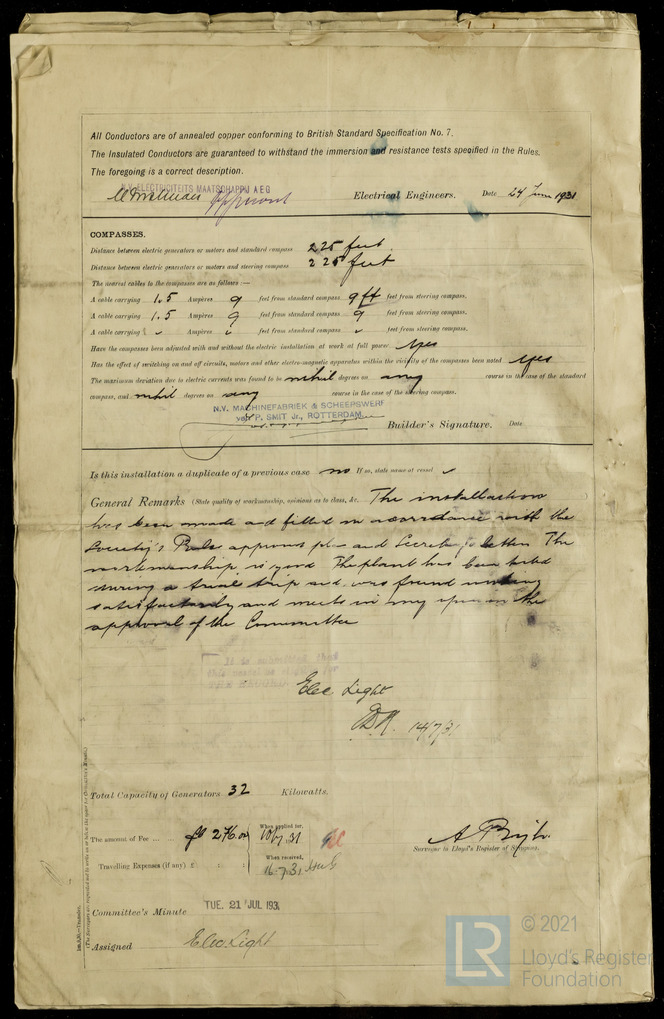 All Conductors are of annealed copper conforming to British Standard Specification No. 7.
The Insulated Conductors are guaranteed to withstand the immersion and resistance tests specified in the Rules.
The foregoing is a correct description.
N.V. ELECTRICITEITS MAATSCHAPPIJ AEG
Electrical Engineers. Date 24 June 1931
COMPASSES.
Distance between electric generators or motors and standard compass 225 feet.
Distance between electric generators or motors and steering compass 225 feet
The nearest cables to the compasses are as follows:—
A cable carrying 1.5 Ampères 9 feet from standard compass 9 ft feet from steering compass.
A cable carrying 1.5 Ampères 9 feet from standard compass 9 feet from steering compass.
A cable carrying Ampères feet from standard compass feet from steering compass.
Have the compasses been adjusted with and without the electric installation at work at full power yes
Has the effect of switching on and off circuits, motors and other electro-magnetic apparatus within the vicinity of the compasses been noted yes
The maximum deviation due to electric currents was found to be nihil degrees on any course in the case of the standard
compass, and nihil degrees on any course in the case of the steering compass.
N.V. MACHINEFABRIEK & SCHEEPSWERF
van P. SMIT Jr., ROTTERDAM.
Builder's Signature. Date
Is this installation a duplicate of a previous case no If so, state name of vessel
General Remarks (State quality of workmanship, opinions as to class, &c. The installation
has been made and fitted in accordance with the
Society's Rules approved plan and Secretary's letter. The
workmanship is good The plant has been tested
during a trial trip and was found working
satisfactorily and meets in my opinion the
approval of the Committee
It is submitted that
this vessel is eligible for
Elec Light
14/7/31
Total Capacity of Generators 32 Kilowatts.
The amount of Fee ... fl 276.00 When applied for, 10/7.31
Travelling Expenses (if any) £ : : When received, 16.7.31
Surveyor to Lloyd's Register of Shipping.
Committee's Minute TUE. 21 JUL 1931
Assigned Elec Light
© 2021
LR
Lloyd's Register
Foundation